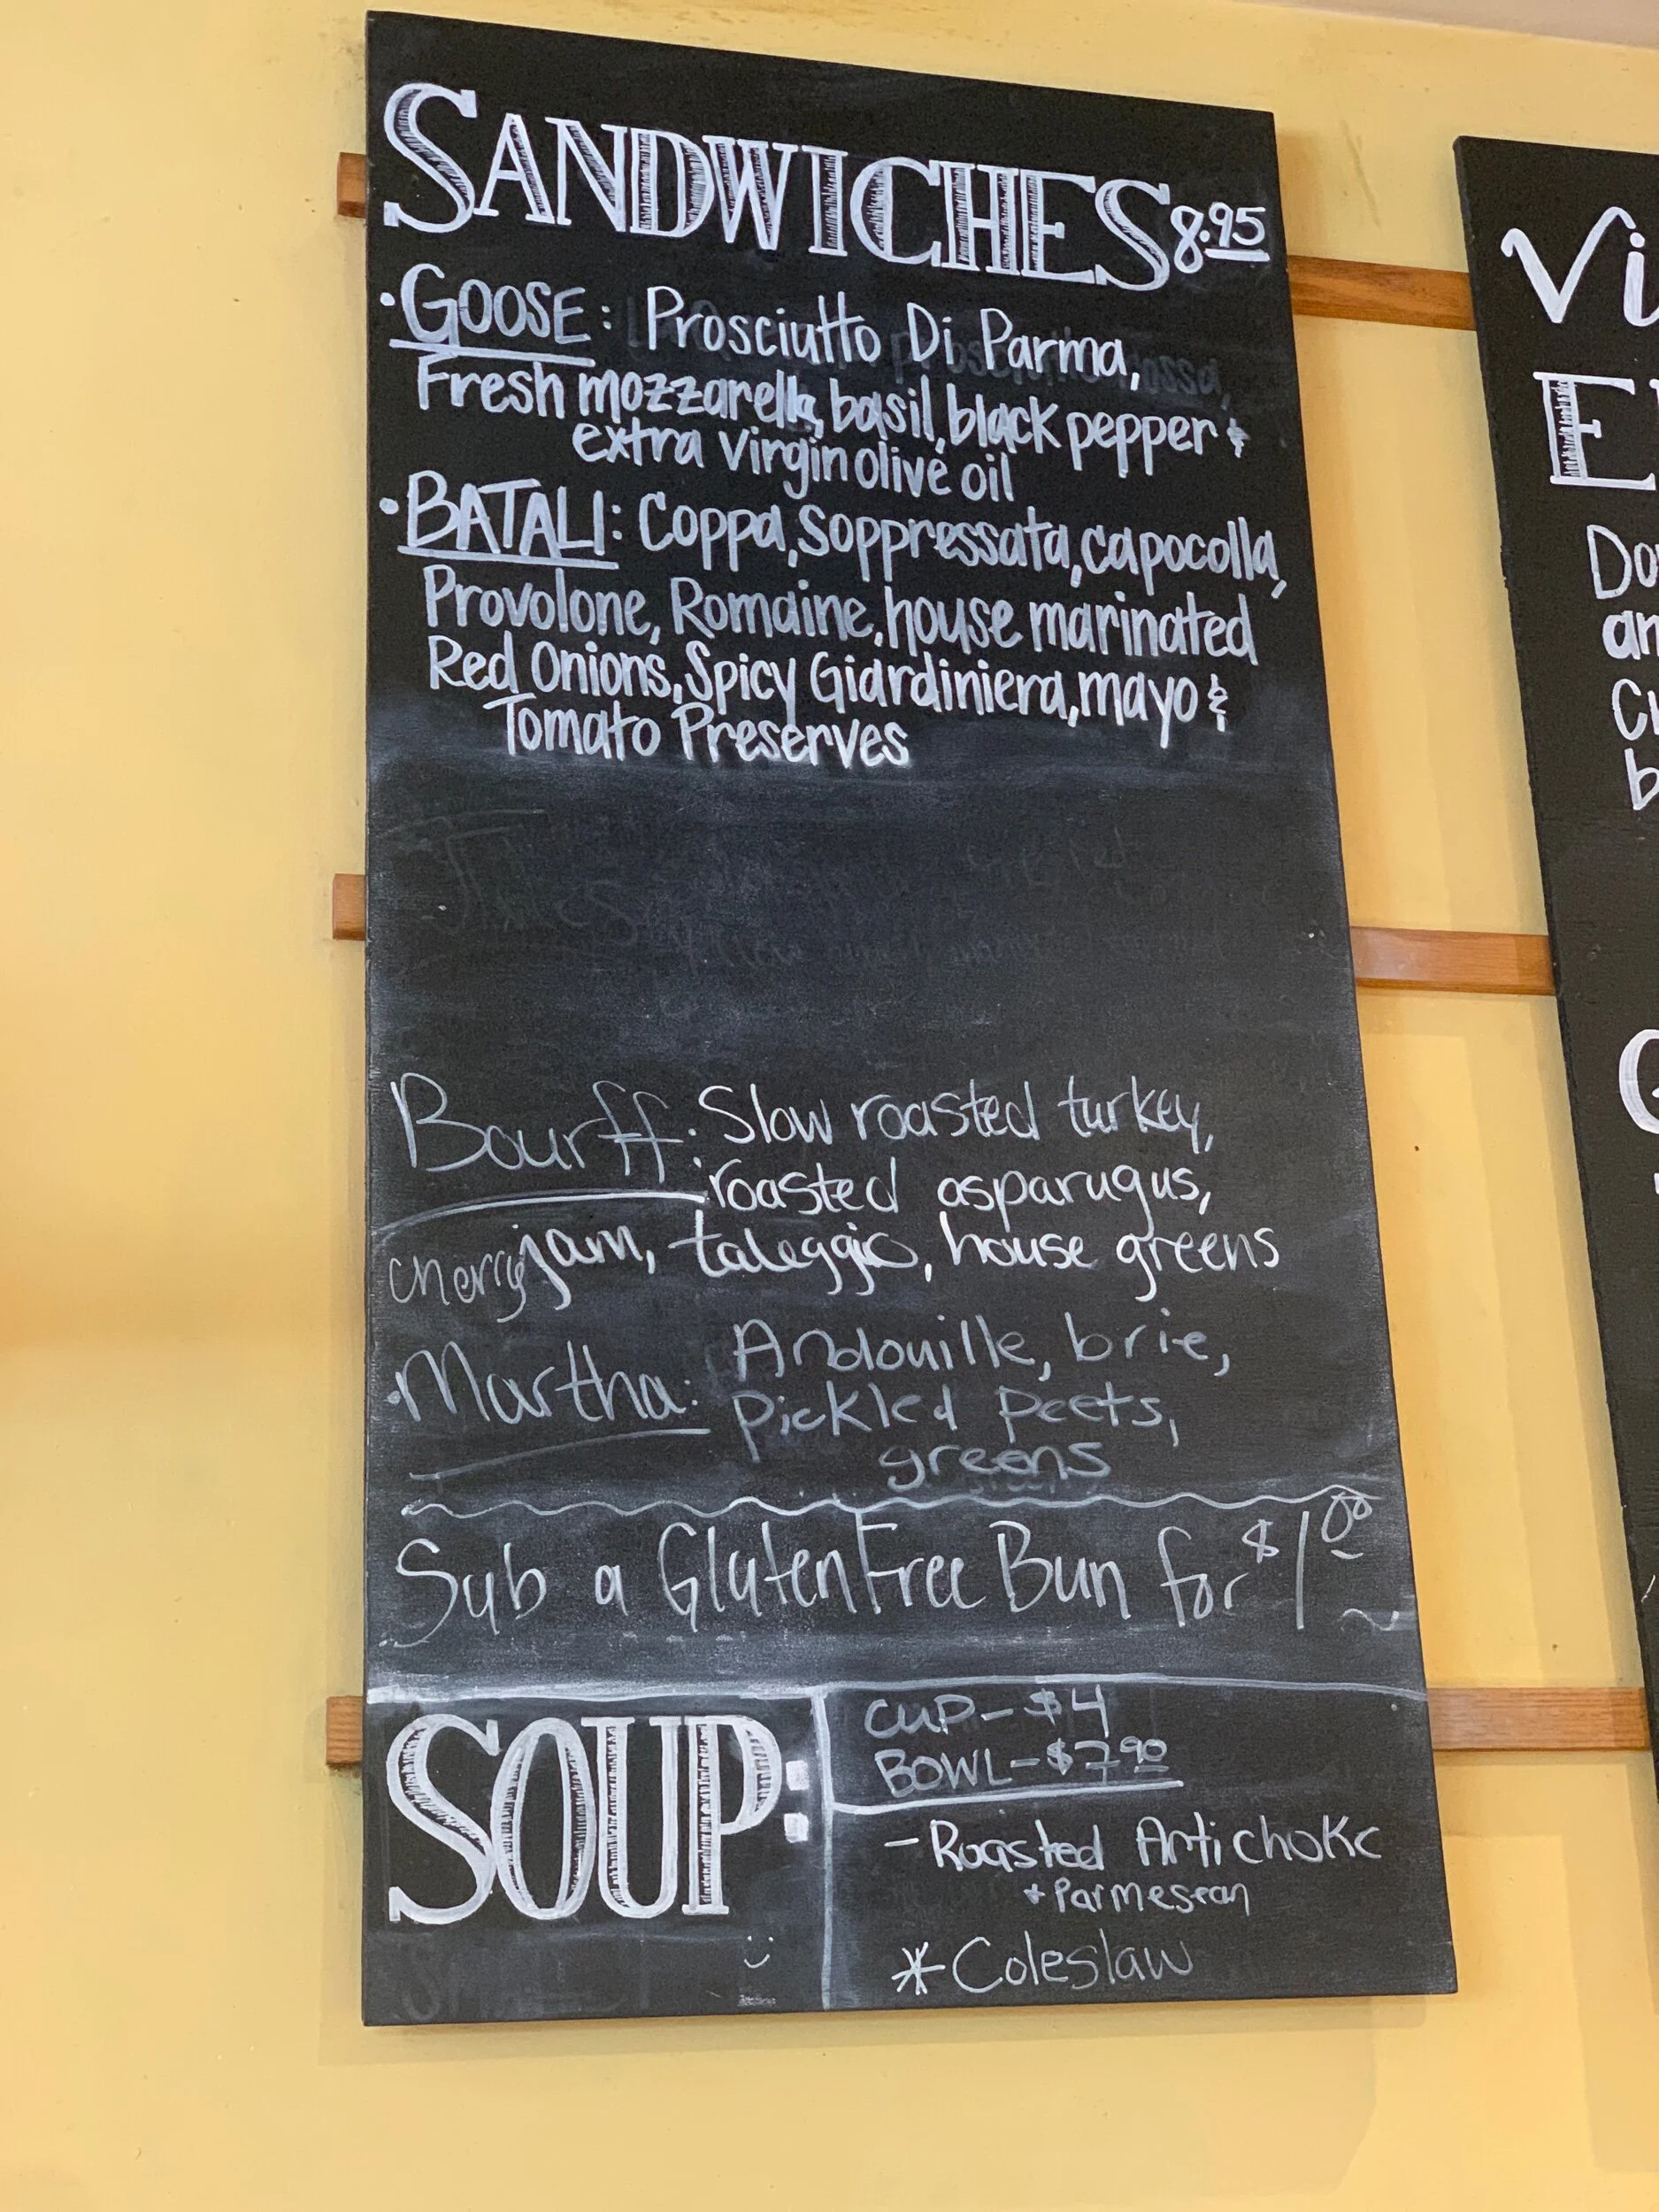 SANDWICHES 8.95
·GOOSE: Prosciutto Di Parma,
Fresh mozzarella, basil, black pepper &
extra virgin olive oil
·BATALI: Coppa, Soppressata, capocolla,
Provolone, Romaine, house marinated
Red Onions, Spicy Giardiniera, mayo &
Tomato Preserves
Bourff: Slow roasted turkey,
roasted asparugus,
cherry jam, taleggio, house greens
·Martha: Andouille, brie,
Pickled Peets,
greens
Sub a Gluten Free Bun for $1.00
SOUP:
CUP - $4
BOWL - $7.90
- Roasted Artichoke
+ Parmesean
* Coleslaw
Vi
E
Do
an
Ch
b
G